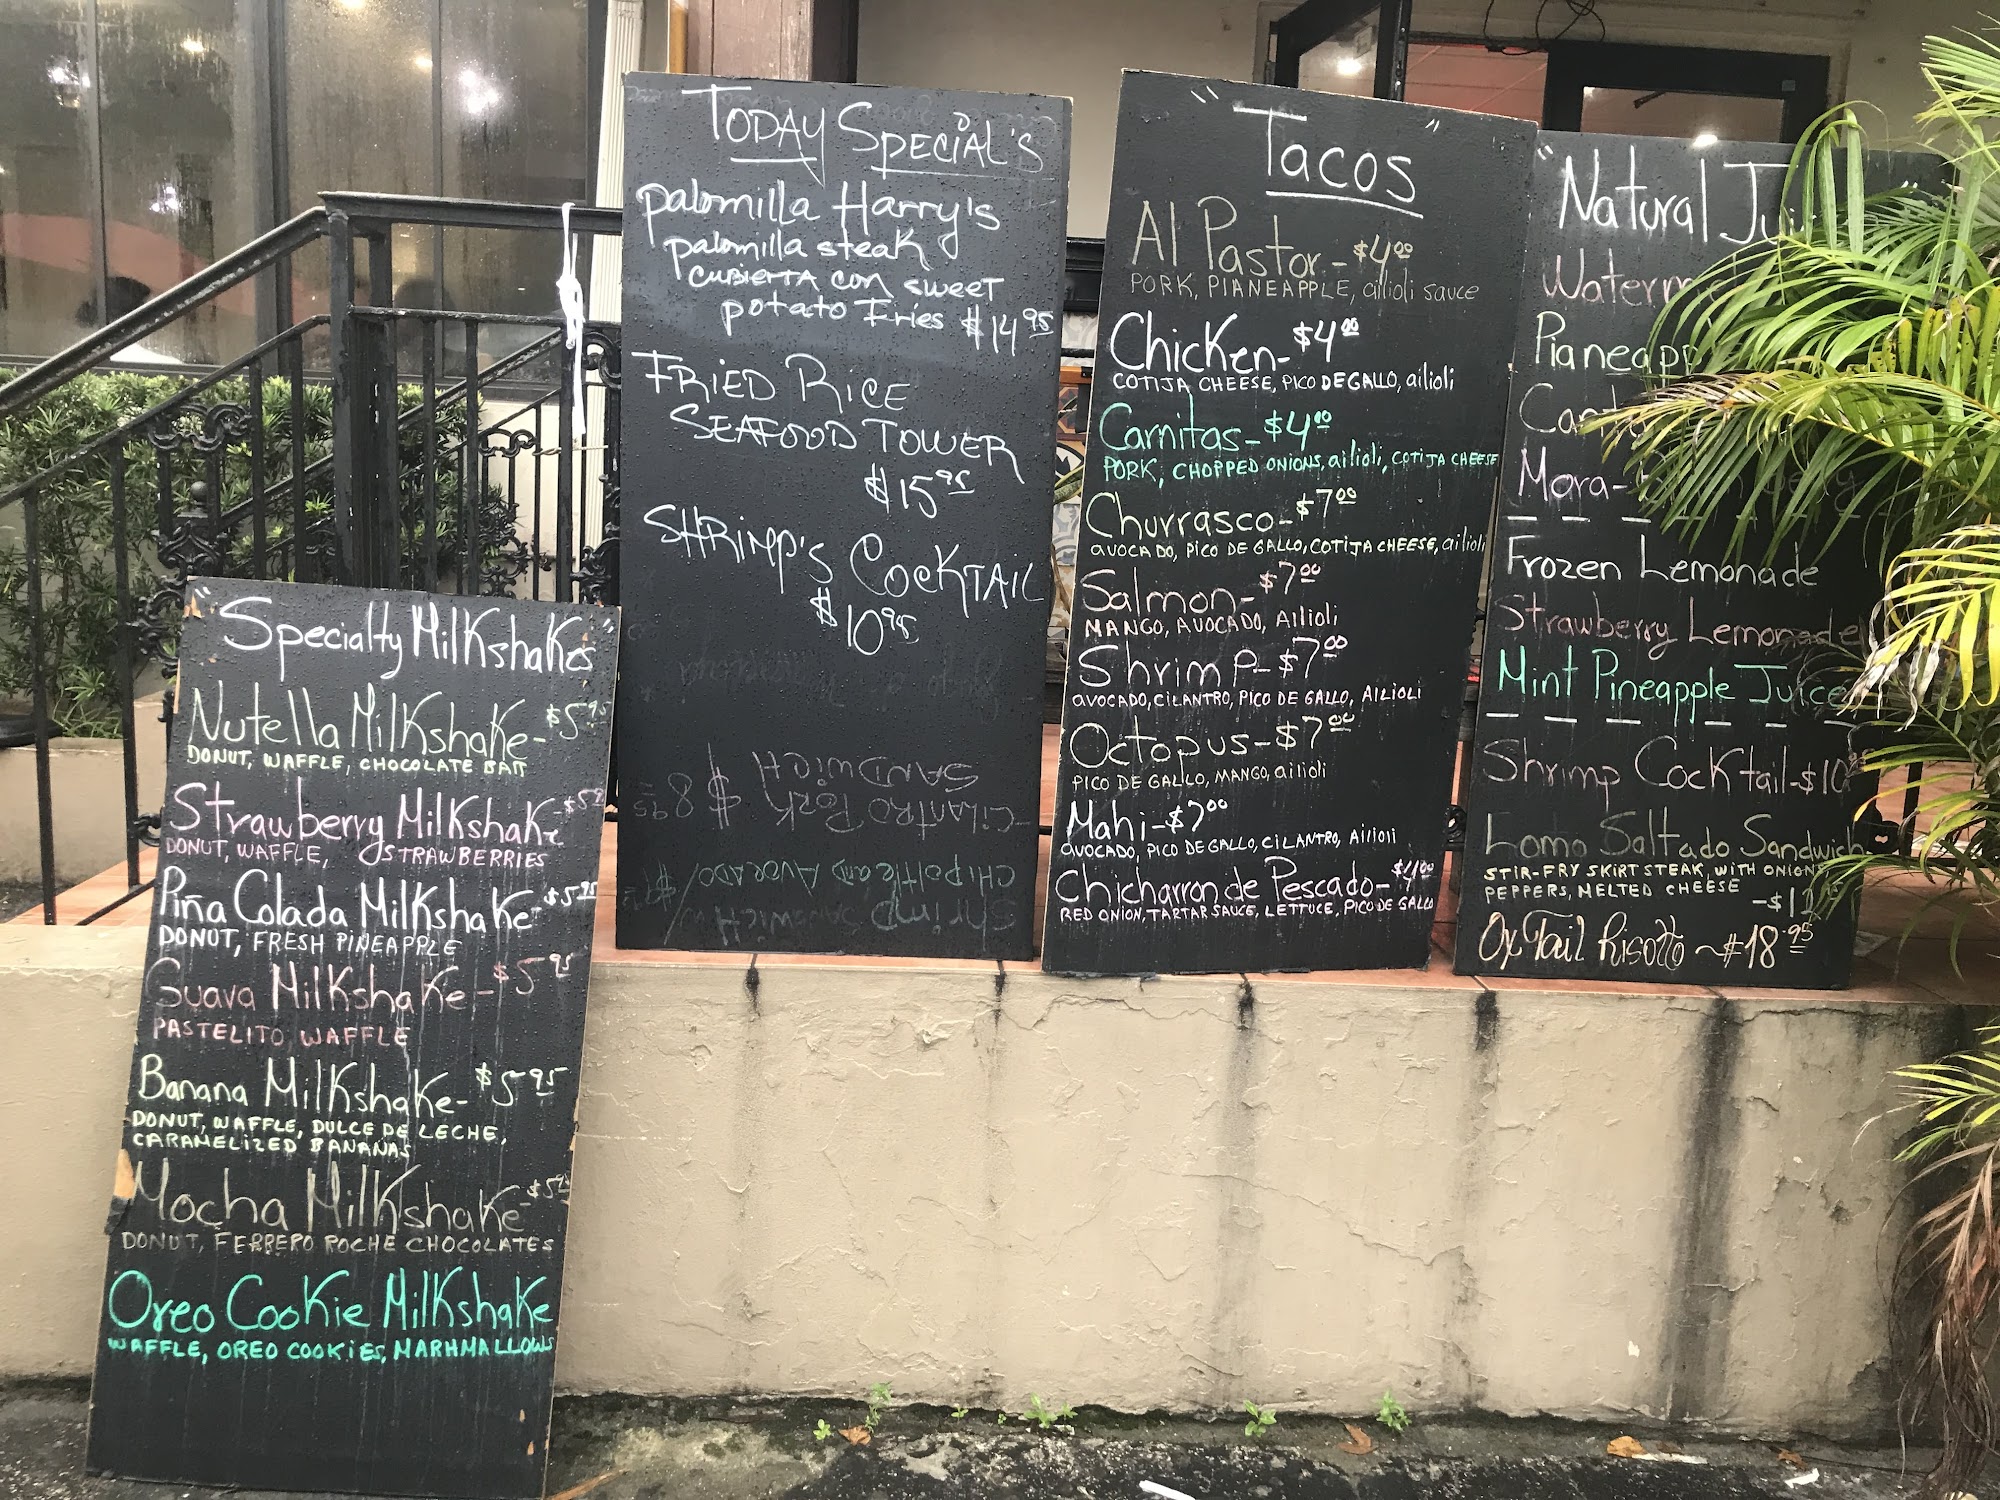 "Specialty Milkshakes"
Nutella Milkshake-$5.95
DONUT, WAFFLE, CHOCOLATE BAR
Strawberry Milkshake $5.95
DONUT, WAFFLE, STRAWBERRIES
Piña Colada Milkshake $5.95
DONUT, FRESH PINEAPPLE
Guava Milkshake-$5.95
PASTELITO, WAFFLE
Banana Milkshake-$5.95
DONUT, WAFFLE, DULCE DE LECHE,
CARAMELIZED BANANAS
Mocha Milkshake-$5.95
DONUT, FERRERO ROCHE CHOCOLATES
Oreo Cookie Milkshake
WAFFLE, OREO COOKIES, MARHMALLOWS
TODAY SPECIAL'S
palomilla Harry's
palomilla steak
CUBIERTA con sweet
potato Fries $14.95
FRIED RICE
SEAFOOD TOWER
$15.95
SHRIMP'S COCKTAIL
$10.95
SANDWICH
-CILANTRO PORK $8.95
CHIPOTLE AND AVOCADO/
Shrimp SANDWICH W/
"Tacos"
Al Pastor-$4.00
PORK, PIANEAPPLE, ailioli sauce
Chicken-$4.00
COTIJA CHEESE, PICO DE GALLO, ailioli
Carnitas-$4.00
PORK, CHOPPED ONIONS, ailioli, COTIJA CHEESE
Churrasco-$7.00
AVOCADO, PICO DE GALLO, COTIJA CHEESE, ailioli
Salmon-$7.00
MANGO, AVOCADO, Ailioli
Shrimp-$7.00
AVOCADO, CILANTRO, PICO DE GALLO, AILIOLI
Octopus-$7.00
PICO DE GALLO, MANGO, ailioli
Mahi-$7.00
AVOCADO, PICO DE GALLO, CILANTRO, Ailioli
Chicharron de Pescado-$11.00
RED ONION, TARTAR SAUCE, LETTUCE, PICO DE GALLO
"Natural Jui
Waterm
Pianeapp
Cant
Mora-
Frozen Lemonade
Strawberry Lemonade
Mint Pineapple Juice
Shrimp Cocktail-$10.95
Lomo Saltado Sandwich
STIR-FRY SKIRT STEAK, WITH ONIONS
PEPPERS, MELTED CHEESE
Ox Tail Risotto ~$18.95